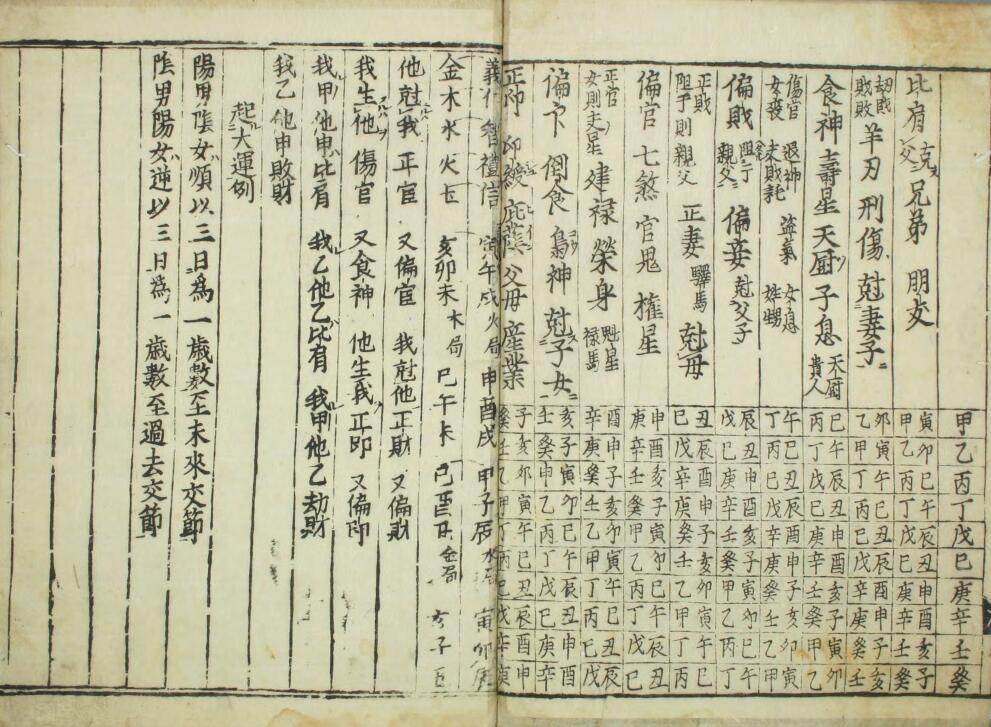 甲乙丙丁戊巳庚辛壬癸
比肩 兄弟 朋友 寅卯巳午辰丑申酉亥子
甲乙丙丁戊巳庚辛壬癸
劫財 敗財 羊刃 刑傷 尅妻子 卯寅午巳丑辰酉申子亥
乙甲丁丙巳戊辛庚癸壬
食神 壽星 天厨 子息 天厨貴人 巳午辰丑申酉亥子寅卯
丙丁戊巳庚辛壬癸甲乙
傷官 女喪 退神 盗氣 女息 姓甥 午巳丑辰酉申子亥卯寅
丁丙巳戊辛庚癸壬乙甲
偏敗 親父 偏妾 尅父子 辰丑申酉亥子寅卯巳午
戊巳庚辛壬癸甲乙丙丁
正財 則親父 正妻 驛馬 尅母 丑辰酉申子亥卯寅午巳
巳戊辛庚癸壬乙甲丁丙
偏官 七煞 官鬼 權星 申酉亥子寅卯巳午辰丑
庚辛壬癸甲乙丙丁戊巳
正官 女則夫星 建禄 榮身 魁星 禄馬 酉申子亥卯寅午巳丑辰
辛庚癸壬乙甲丁丙巳戊
偏卞 倒食 梟神 尅子女 亥子寅卯巳午辰丑申酉
壬癸甲乙丙丁戊巳庚辛
正卬 卬綬 庇蔭 父母 産業 子亥卯寅午巳丑辰酉申
癸壬乙甲丁丙巳戊辛庚
義仁智禮信 寅午戌火局 申酉戌 甲子辰水局 寅卯辰
金木水火土 亥卯未木局 巳午未 巳酉丑金局 亥子丑
他尅我 正官 又偏官 我尅他正財 又偏財
我生他 傷官 又食神 他生我正卬 又偏卬
我甲他甲比肩 我乙他乙比肩 我甲他乙劫財
我乙他甲敗財
起大運例
陽男陰女順以三日爲一歳數至未來交節
陰男陽女逆以三日爲一歳數至過去交節